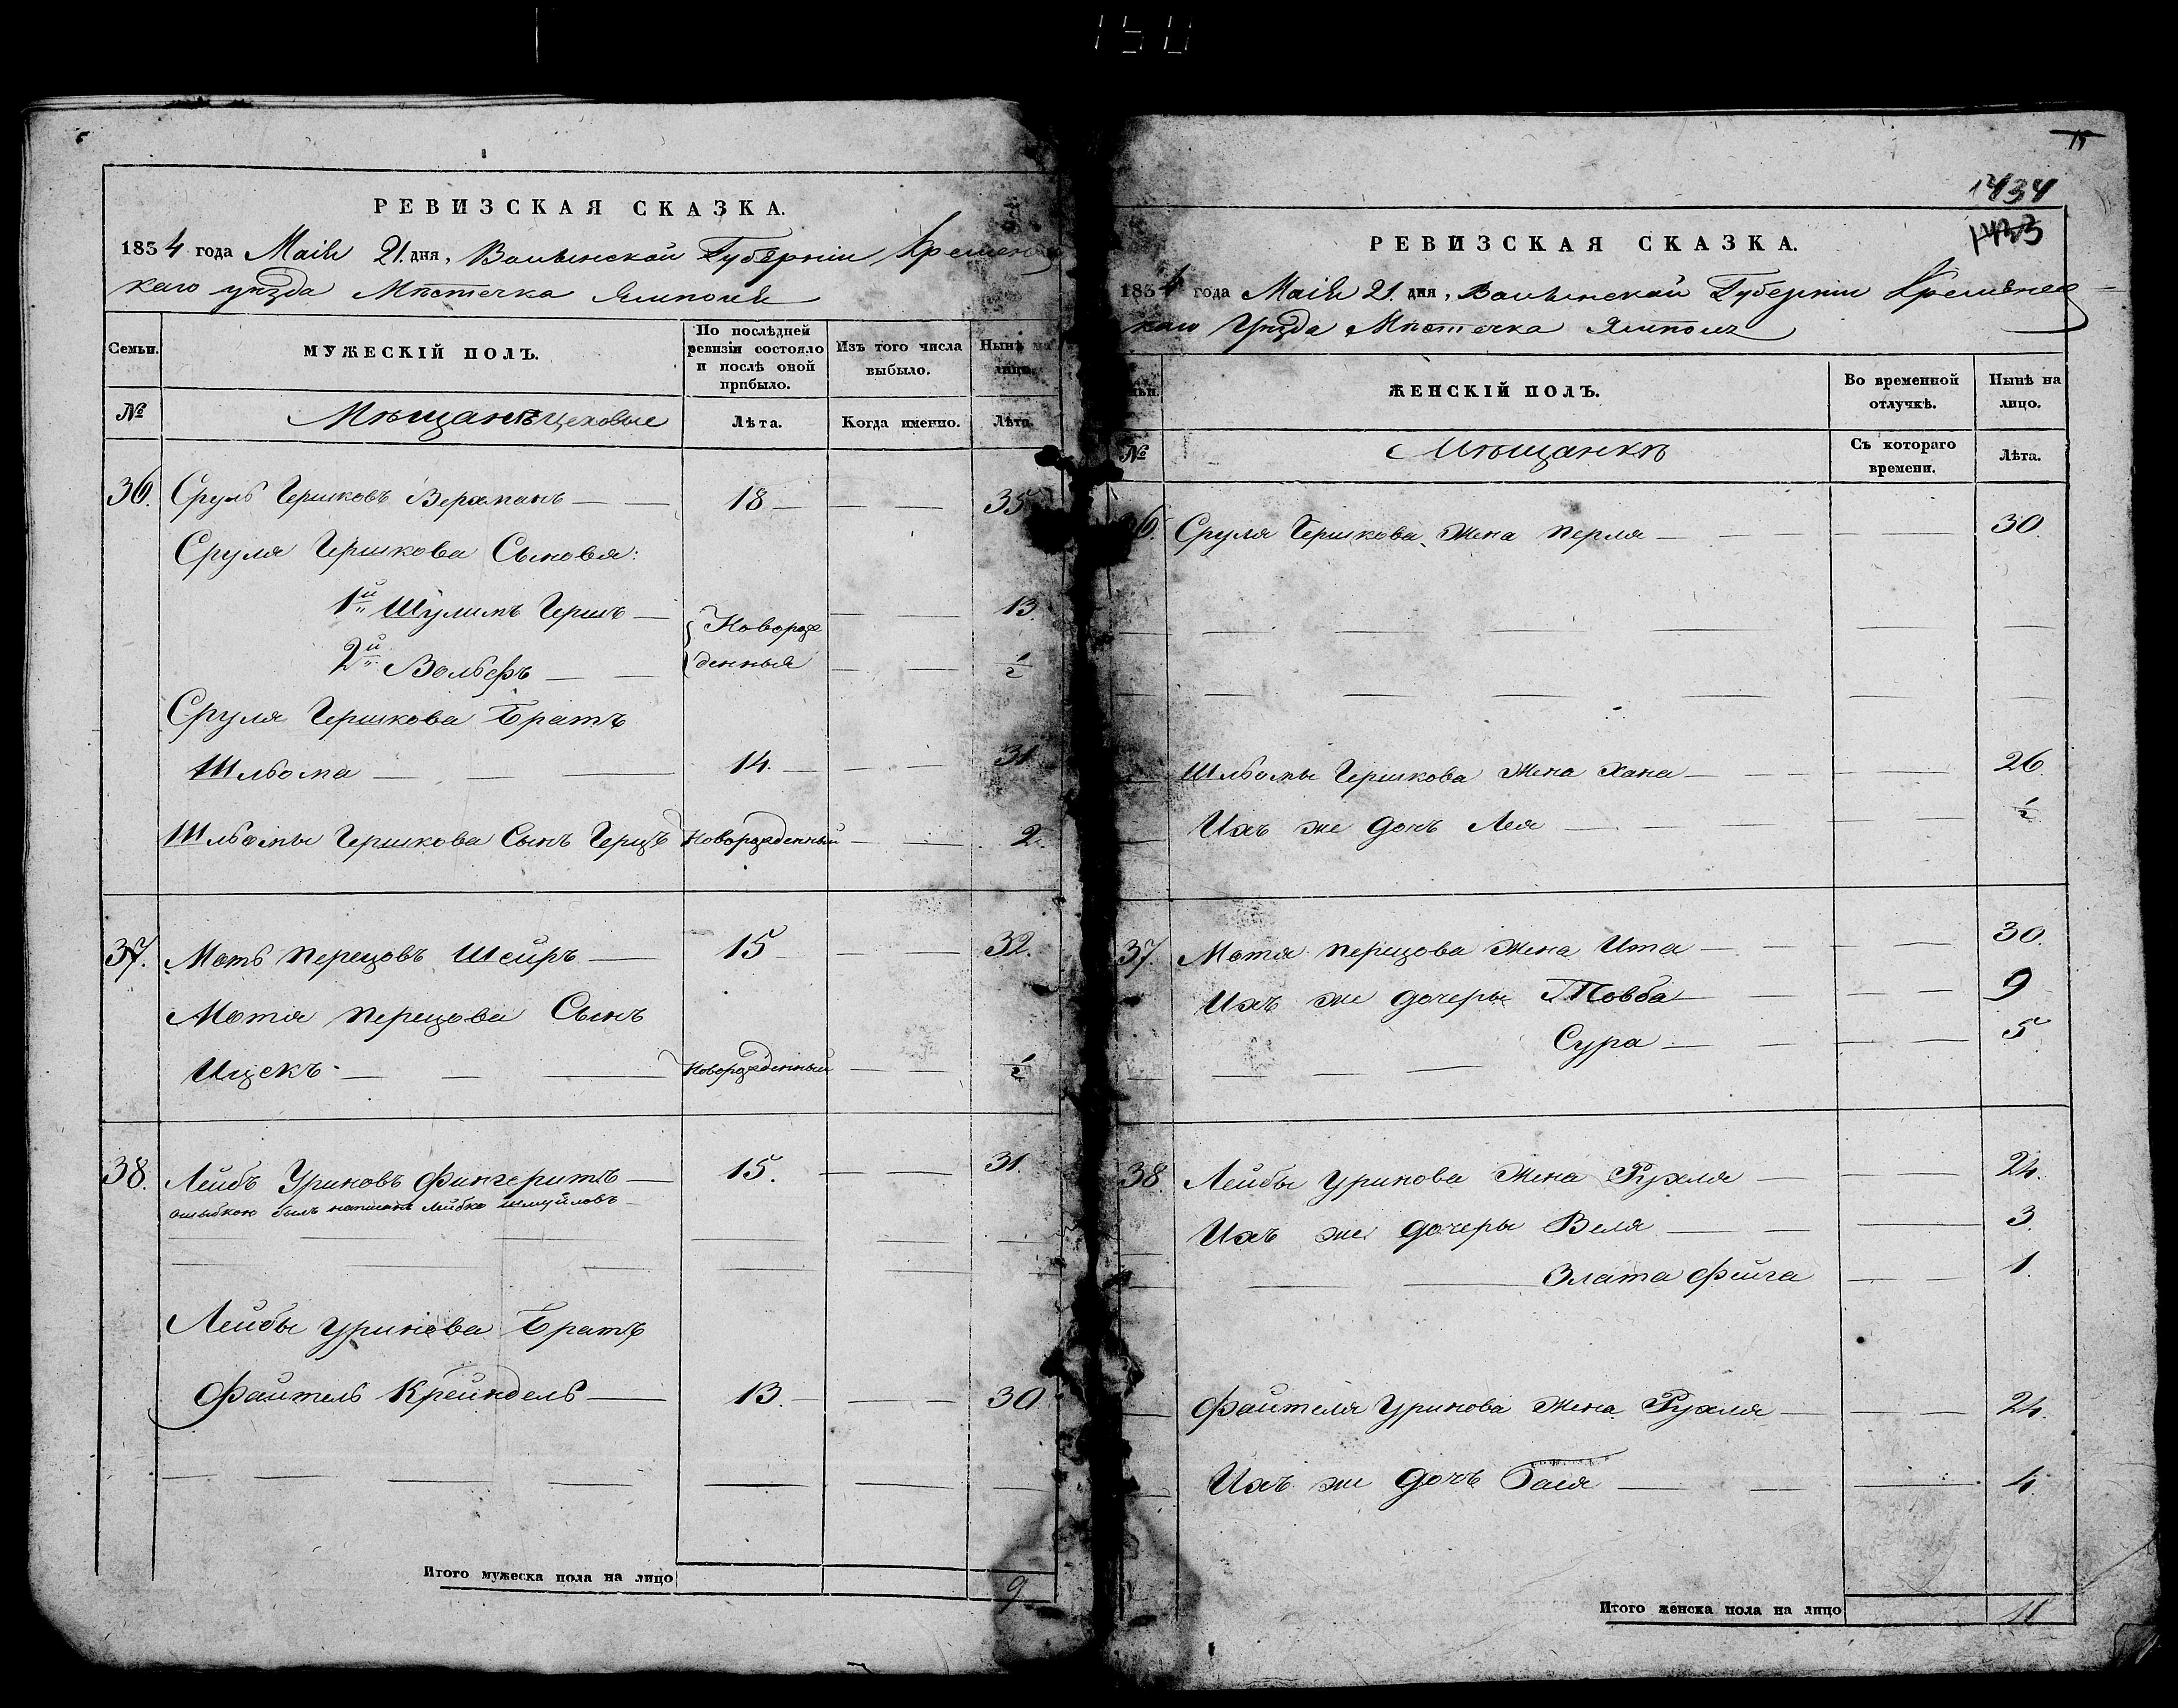 150
РЕВИЗСКАЯ СКАЗКА.
1834 года Маія 21. дня, Волынской Губерніи Кременец
каго уѣзда Мѣстечка Ямполя
Семьи.
МУЖЕСКІЙ ПОЛЪ.
По послѣдней ревизіи состояло и послѣ оной прибыло.
Изъ того числа выбыло.
Нынѣ на лицо.
№
Мѣщанѣ цеховые
Лѣта.
Когда именно.
Лѣта.
36. Сруль Гершковъ Верхманъ — 18 — — — 35
Сруля Гершкова Сыновья:
1й Шулимъ Гершъ — Новорож — — 13.
2й Вольфъ — — денныя — — ½
Сруля Гершкова Братъ
Шльома — — — 14. — — — 31
Шльомы Гершкова Сынъ Герцъ Новорожденный — — 2.
37. Моть Перецовъ Шейръ — 15 — — — 32.
Мотя Перецова Сынъ
Ицекъ — — — Новорожденный — — ½
38. Лейбъ Уриновъ Фингеритъ — 15. — — 31.
ошыбкою былъ написанъ Лейбко Шмуйловъ —
Лейбы Уринова Братъ
Файтель Крейндель — 13. — — — 30
Итого мужеска пола на лицо 9
15
1434
1433
РЕВИЗСКАЯ СКАЗКА.
1834 года Маія 21. дня, Волынской Губерніи Кременец
каго Уѣзда Мѣстечка Ямполя
ЖЕНСКІЙ ПОЛЪ.
Во временной отлучкѣ.
Нынѣ на лицо.
№
Мѣщанкѣ
Съ котораго времени.
Лѣта.
36. Сруля Гершкова Жена Перля — — — — — 30.
Шльомы Гершкова Жена Хана — — — — 26.
Ихъ же дочъ Лея — — — — — ½
37. Мотя Перецова Жена Ита — — — — 30.
Ихъ же дочеры Товба — — — — 9
Сура — — — — 5
38. Лейбы Уринова Жена Рухля — — — 24.
Ихъ же дочеры Веля — — — 3.
Злата Фейга — — 1.
Файтеля Уринова Жена Рухля — — — 24.
Ихъ же дочъ Бася — — — 4.
Итого женска пола на лицо 11